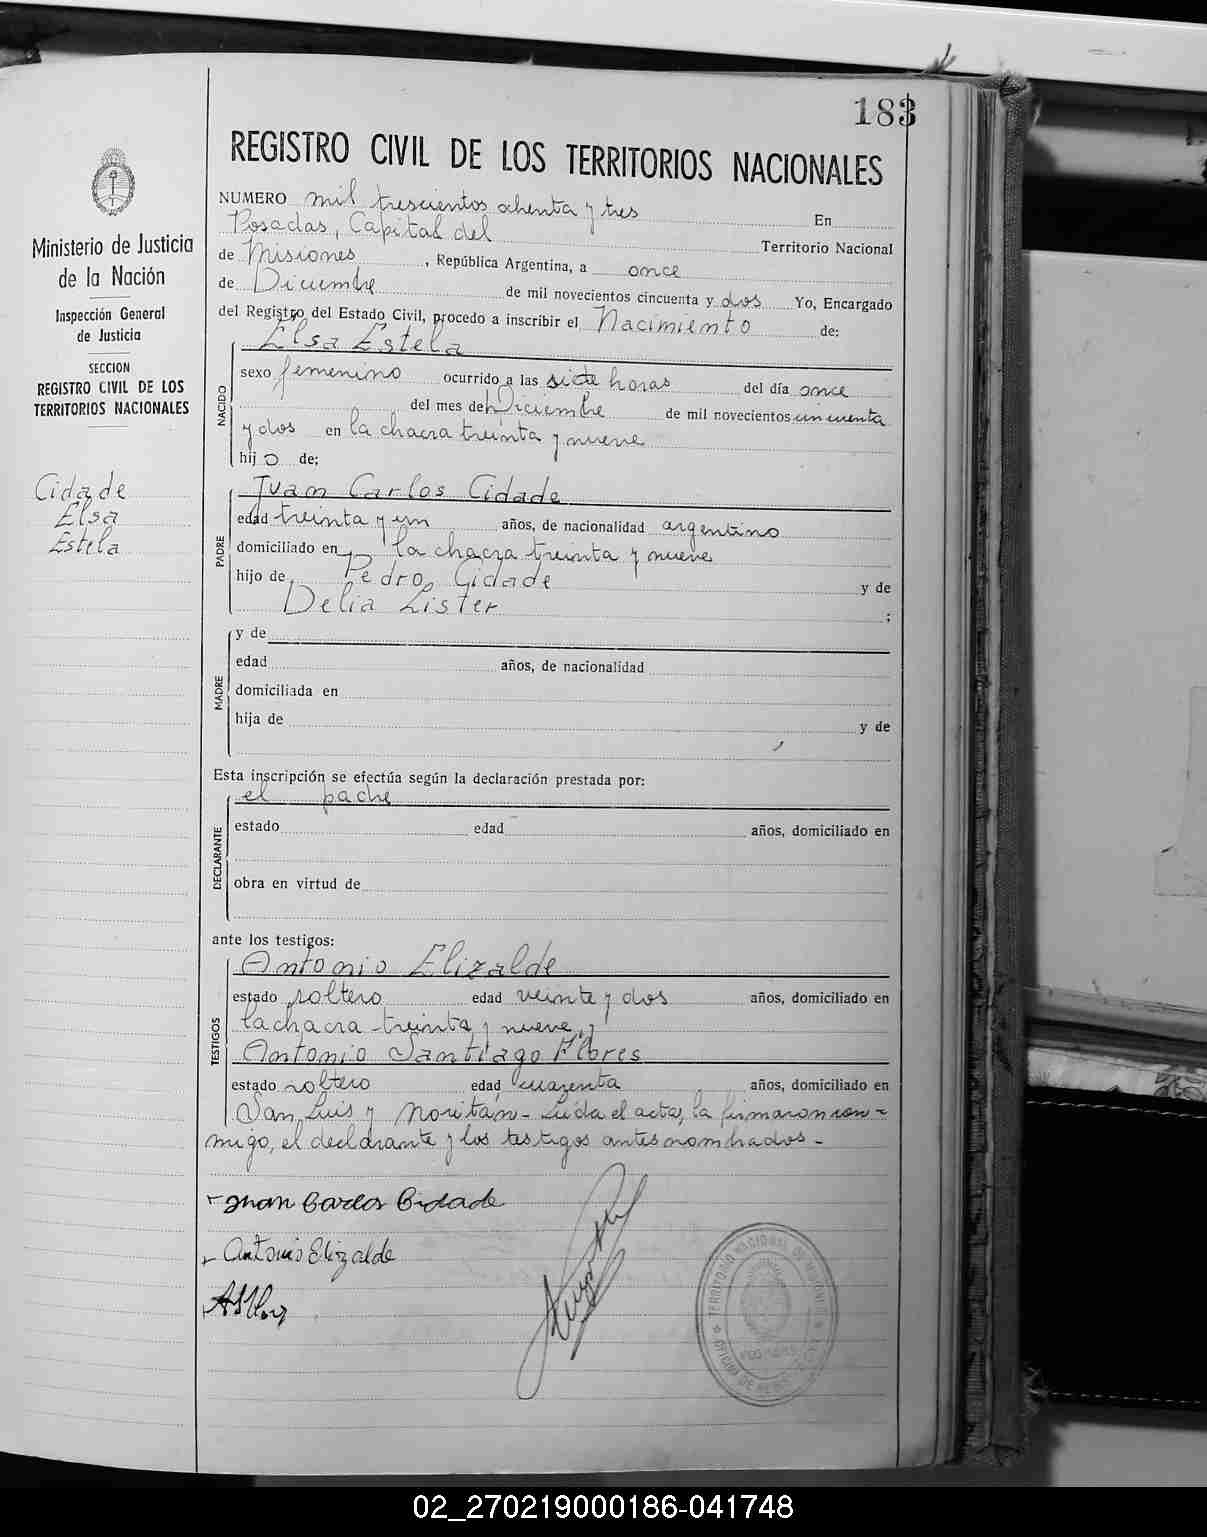 183
REGISTRO CIVIL DE LOS TERRITORIOS NACIONALES
Ministerio de Justicia
de la Nación
Inspección General
de Justicia
SECCION
REGISTRO CIVIL DE LOS
TERRITORIOS NACIONALES
Cidade
Elsa
Estela
NUMERO mil trescientos ochenta y tres En
Posadas, Capital del Territorio Nacional
de Misiones, República Argentina, a once
de Diciembre de mil novecientos cincuenta y dos Yo, Encargado
del Registro del Estado Civil, procedo a inscribir el Nacimiento de:
NACIDO
Elsa Estela
sexo femenino ocurrido a las siete horas del día once
del mes de Diciembre de mil novecientos cincuenta
y dos en la chacra treinta y nueve
hijo de;
PADRE
Juan Carlos Cidade
edad treinta y un años, de nacionalidad argentino
domiciliado en la chacra treinta y nueve
hijo de Pedro Cidade y de
Delia Lister ;
MADRE
y de
edad años, de nacionalidad
domiciliada en
hija de y de
,
Esta inscripción se efectúa según la declaración prestada por:
DECLARANTE
el padre
estado edad años, domiciliado en
obra en virtud de
ante los testigos:
TESTIGOS
Antonio Elizalde
estado soltero edad veinte y dos años, domiciliado en
la chacra treinta y nueve, y
Antonio Santiago Flores
estado soltero edad cuarenta años, domiciliado en
San Luis y - Leída el acta, la firmaron con-
migo, el declarante y los testigos antes nombrados -
Juan Carlos Cidade
Antonio Elizalde
TERRITORIO NACIONAL DE MISIONES
OFICINA DE
POSADAS
02_270219000186-041748